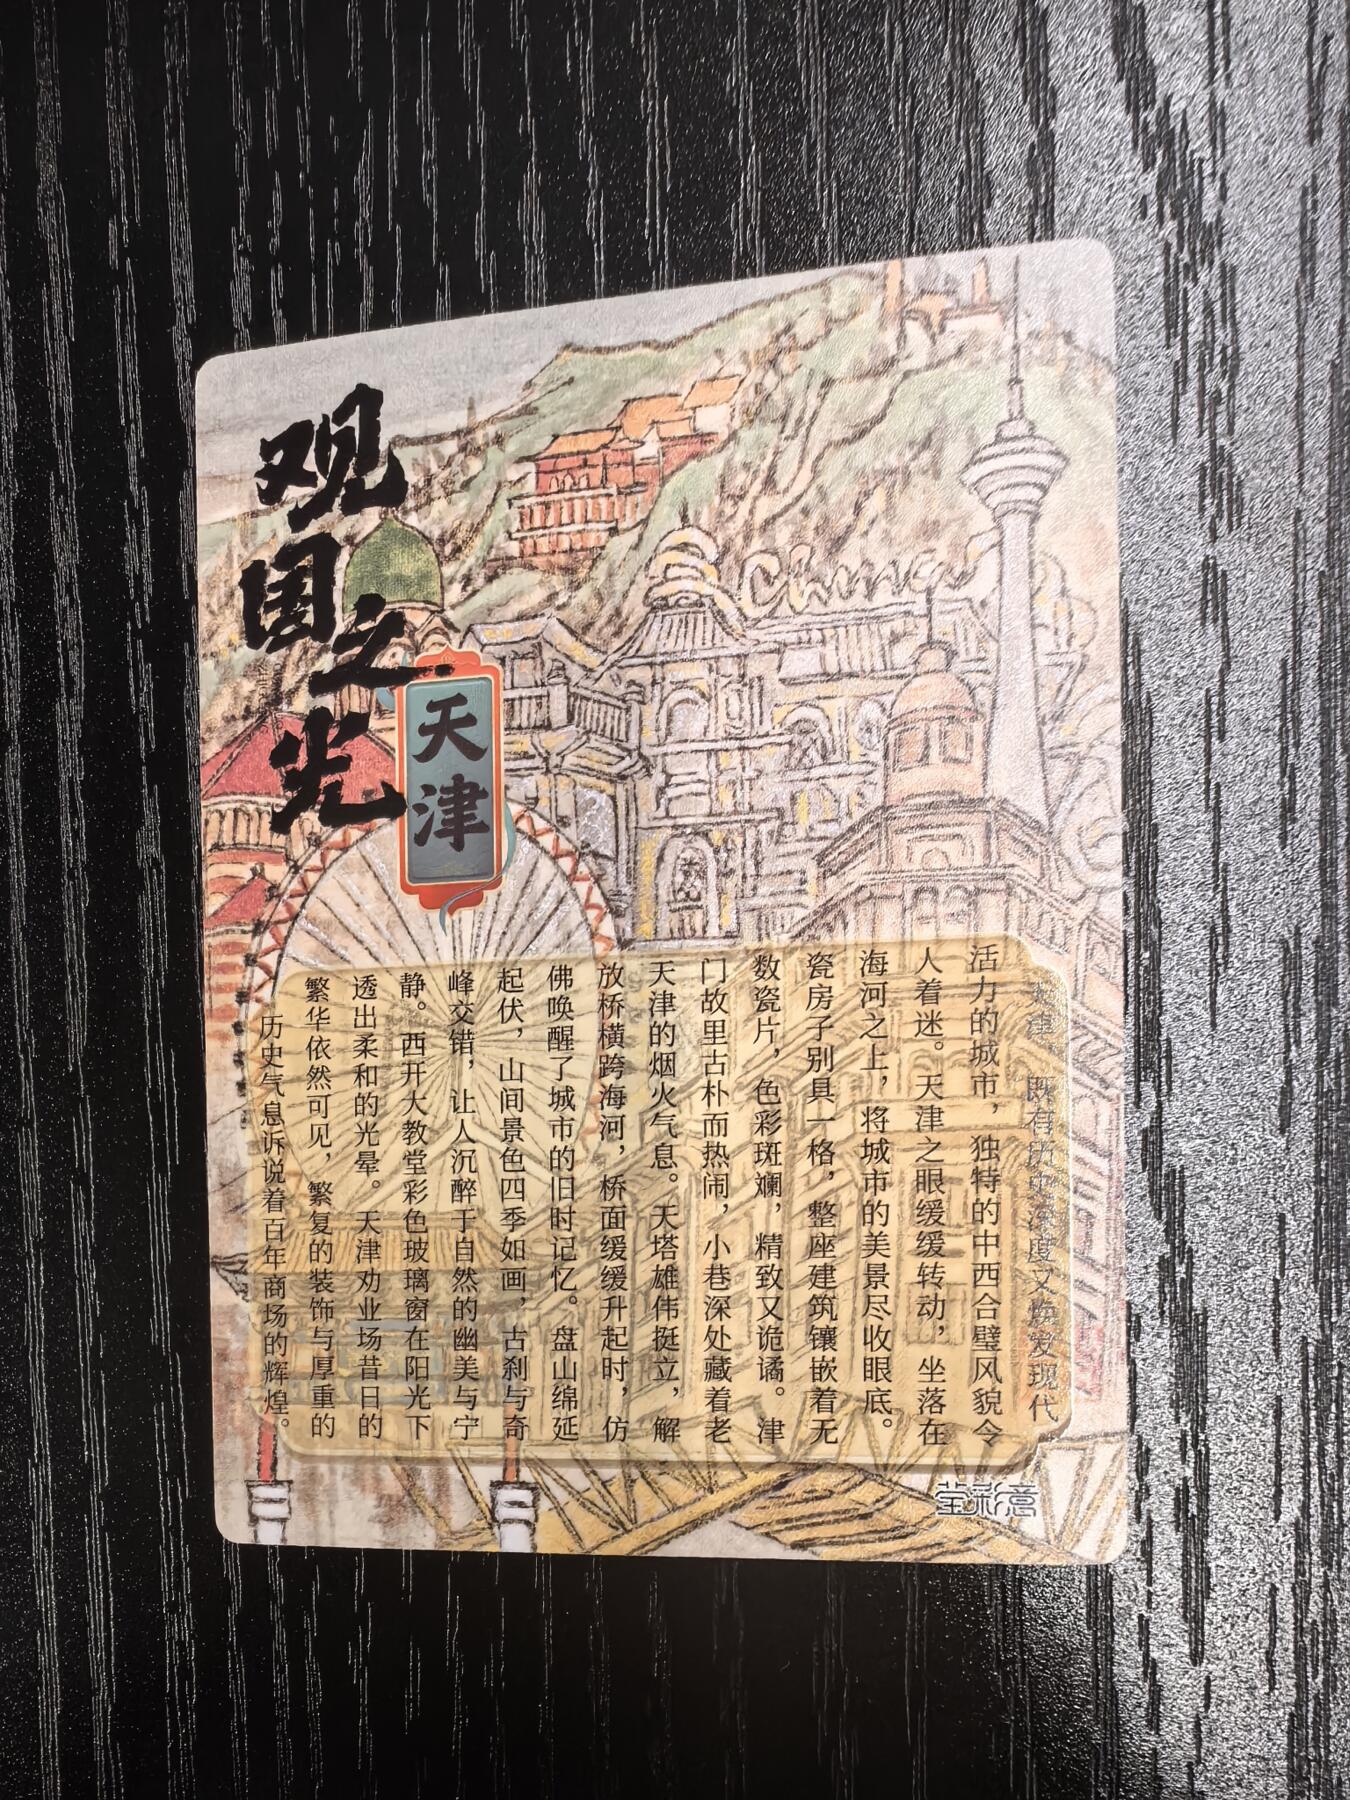 观国之光
天津
天津，既有历史深度又焕发现代
活力的城市，独特的中西合璧风貌令
人着迷。天津之眼缓缓转动，坐落在
海河之上，将城市的美景尽收眼底。
瓷房子别具一格，整座建筑镶嵌着无
数瓷片，色彩斑斓，精致又诡谲。津
门故里古朴而热闹，小巷深处藏着老
天津的烟火气息。天塔雄伟挺立，解
放桥横跨海河，桥面缓缓升起时，仿
佛唤醒了城市的旧时记忆。盘山绵延
起伏，山间景色四季如画，古刹与奇
峰交错，让人沉醉于自然的幽美与宁
静。西开大教堂彩色玻璃窗在阳光下
透出柔和的光晕。天津劝业场昔日的
繁华依然可见，繁复的装饰与厚重的
历史气息诉说着百年商场的辉煌。
China
莹彩意